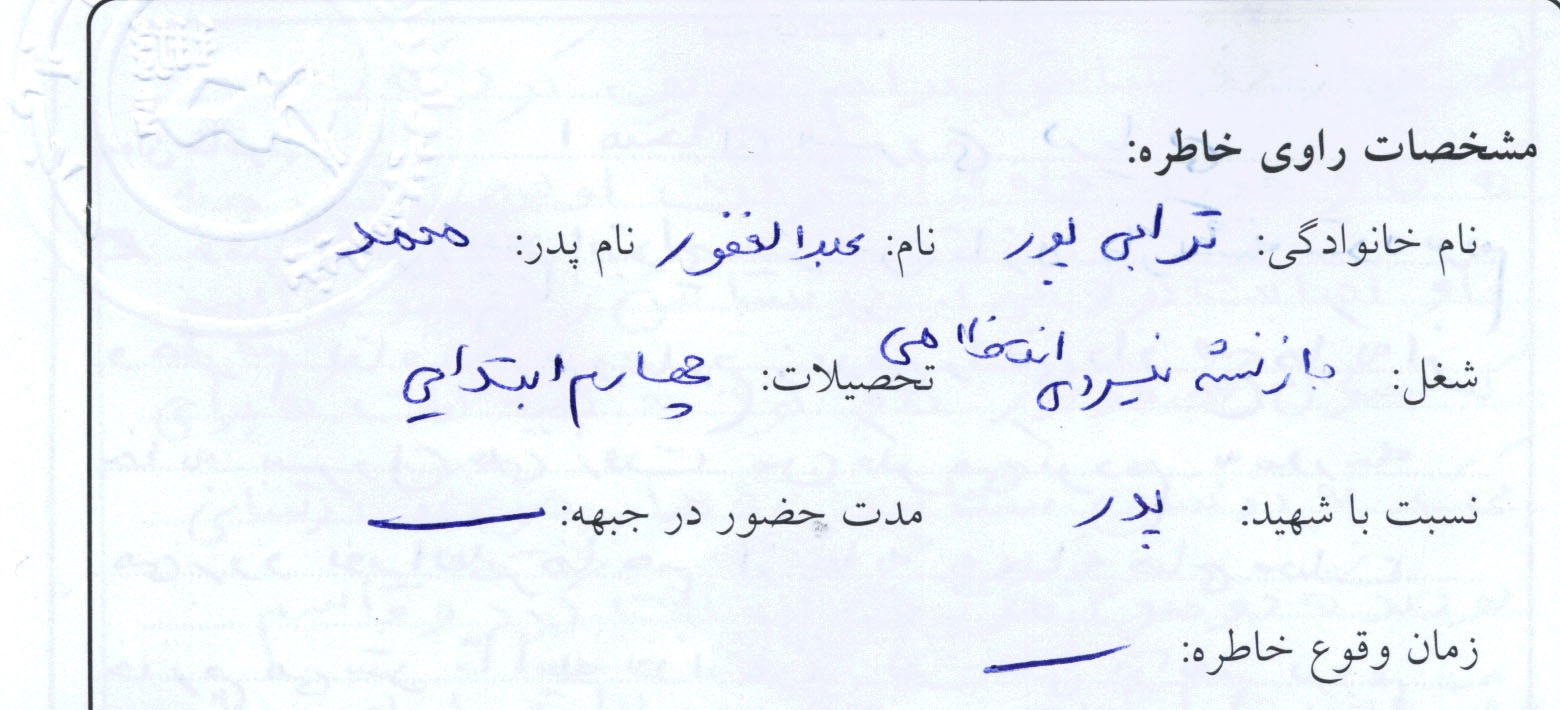 مشخصات راوی خاطره:
نام خانوادگی: ترابی پور نام: عبدالغفور نام پدر: محمد
شغل: بازنشسته نیروی انتظامی تحصیلات: چهارم ابتدایی
نسبت با شهید: پدر مدت حضور در جبهه: ــ
زمان وقوع خاطره: ــ